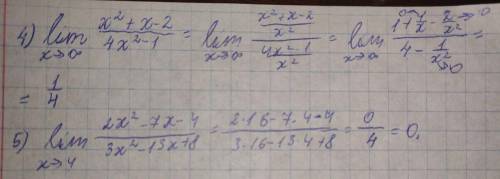 4) lim x→∞ (x²+x-2)/(4x²-1) = lim x→∞ ((x²+x-2)/x²)/((4x²-1)/x²) = lim x→∞ (1+1/x-2/x²)/(4-1/x²) =
= 1/4
5) lim x→4 (2x²-7x-4)/(3x²-13x+8) = (2·16-7·4-4)/(3·16-13·4+8) = 0/4 = 0.